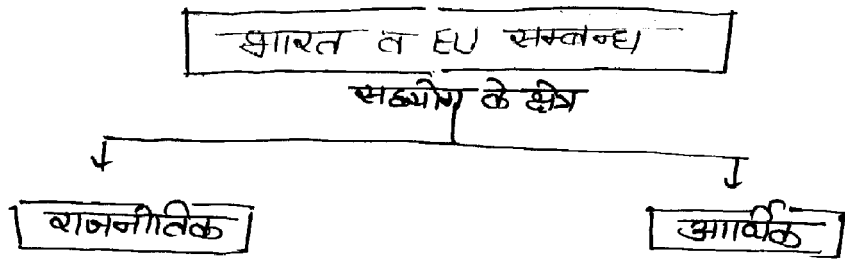 भारत व EU सम्बन्ध
सहयोग के क्षेत्र
राजनीतिक आर्थिक